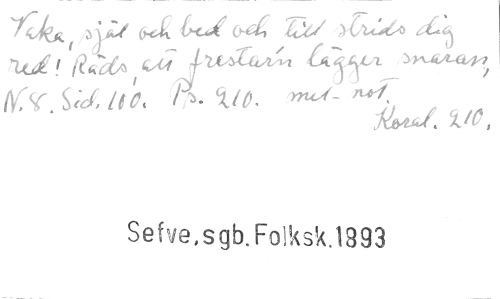 Vaka, själ och bed och till strids dig
red! Räds, att frestar'n lägger snaran,
N. 8. Sid. 100. Ps. 210. met- not.
Koral. 210.
Sefve, sgb. Folksk. 1893